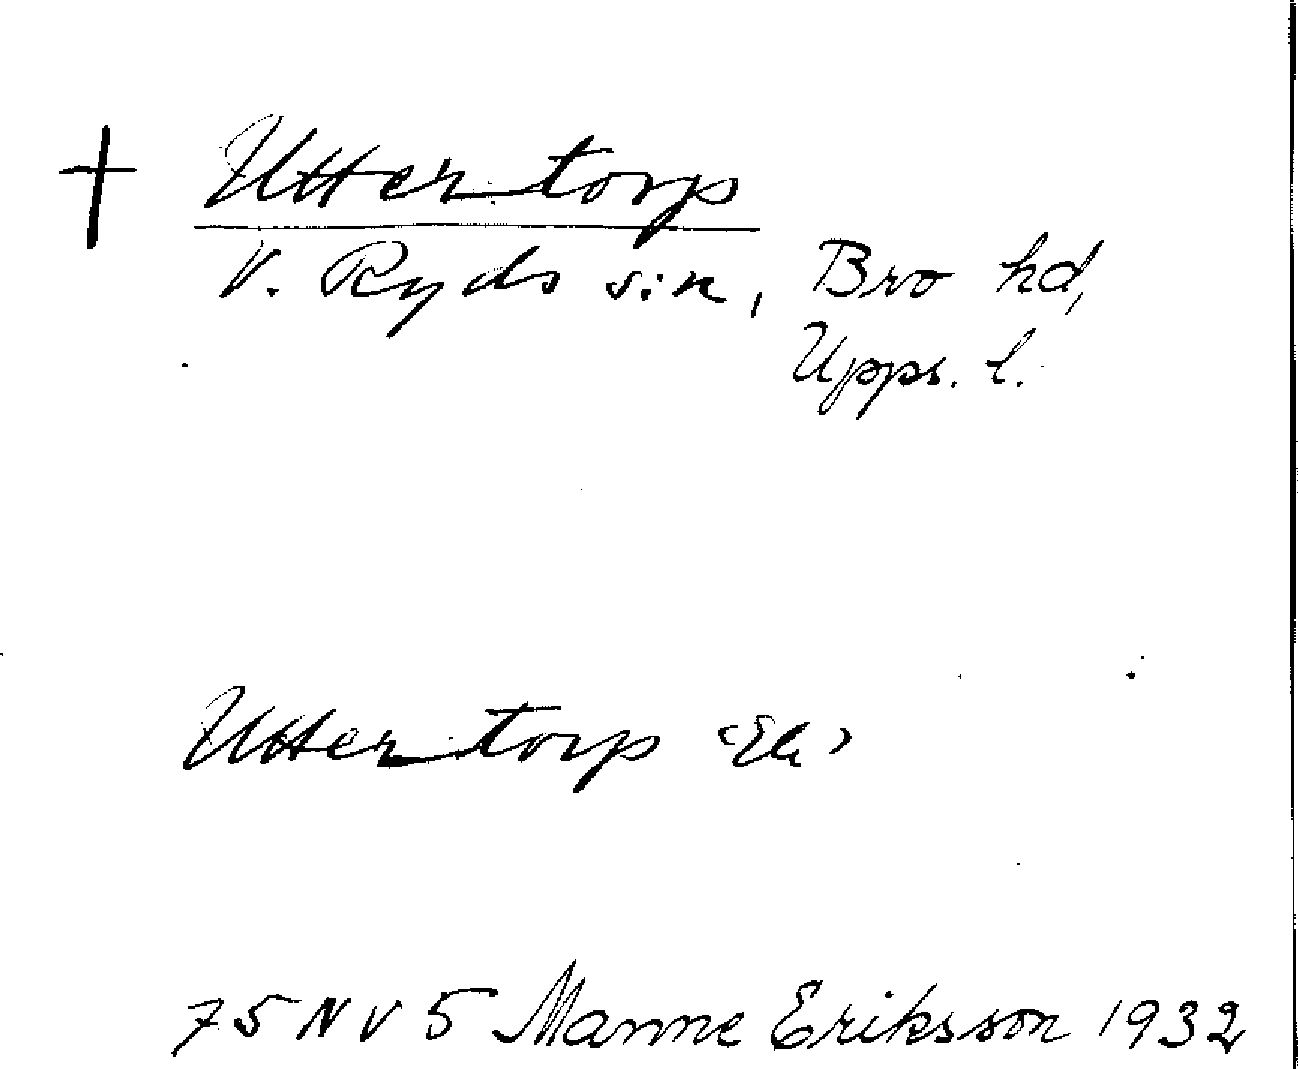 † Uttertorp
V. Ryds s:n, Bro hd,
Upps. l.
Uttertorp <Ek>
75 NV 5 Manne Eriksson 1932